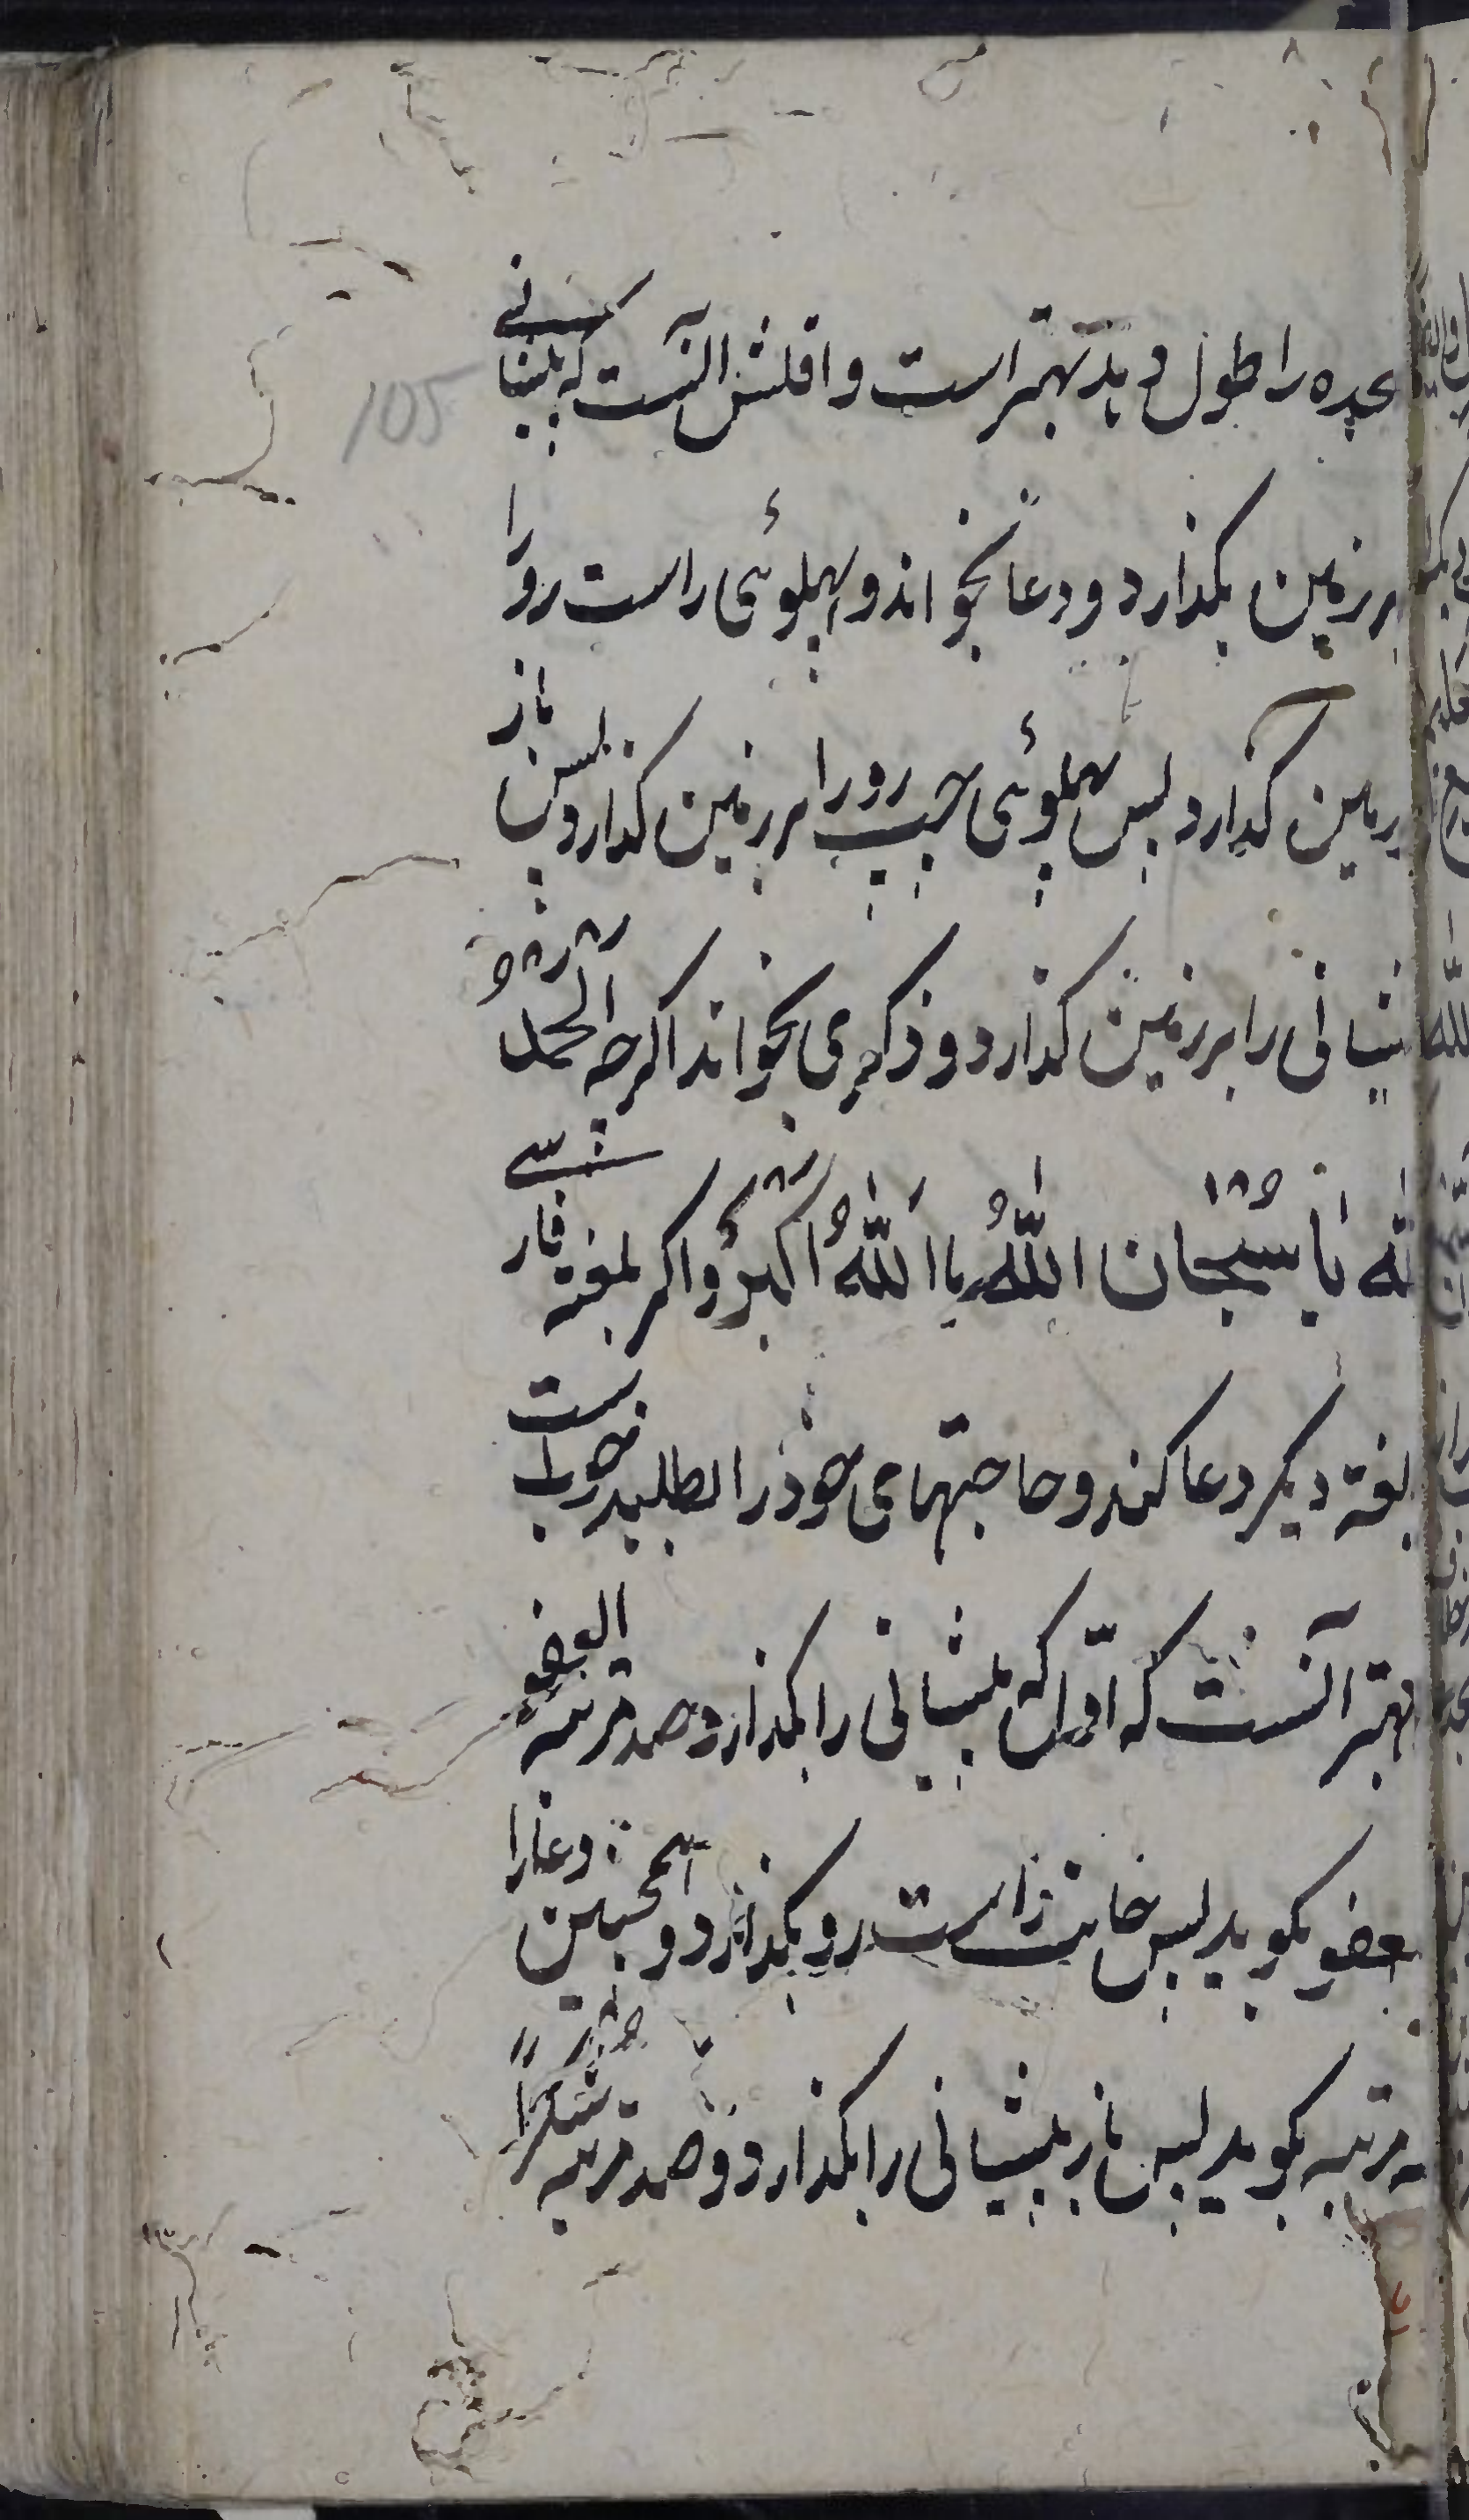 سجده را طول دهد بهتر است و اقلش آنست که پیشانی
بر زمین بگذارد و دعا بخواند و پهلوئی راست رو را
بر زمین گذارد پس پهلوئی چپ رو را بر زمین گذارد پس باز
پیشانی را بر زمین گذارد و ذکری بخواند اگرچه اَلْحَمْدُ
لله یا سُبْحان اللهُ یا اَللهُ اَکْبَرُ و اگر بلغة فارسی
بلغة دیگر دعا کند و حاجتهای خود را بطلبد خوبست
بهتر آنست که اوّل که پیشانی را بگذارد صد مرتبه العفو
العفو بگوید پس جانب راست رو بگذارد و همچنین دعا را
مرتبه بگوید پس باز پیشانی را بگذارد و صد مرتبه شکراً
105